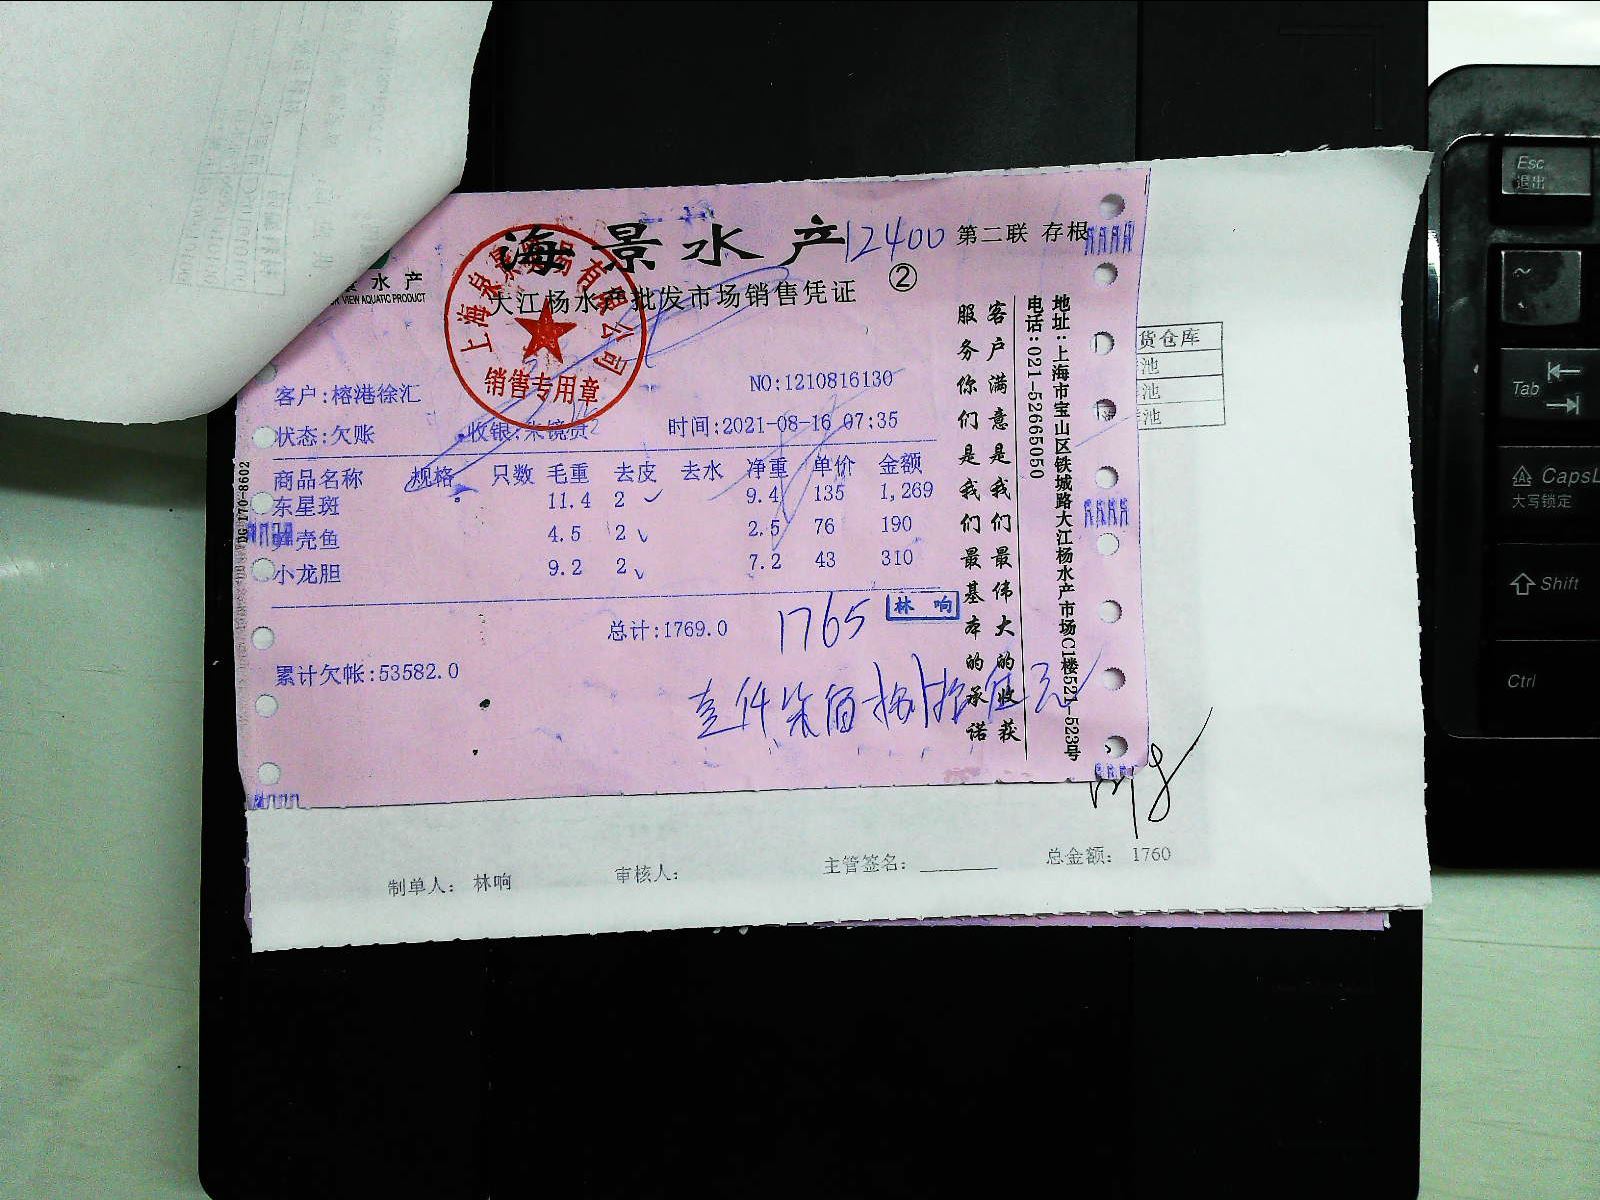 海景水产
12400
第二联 存根
②
水产
VIEW AQUATIC PRODUCT
大江杨水产批发市场销售凭证
上海泉景
有限公司
销售专用章
客户:榕港徐汇
NO:1210816130
状态:欠账
收银:
时间:2021-08-16 07:35
商品名称 规格 只数 毛重 去皮 去水 净重 单价 金额
东星斑 11.4 2 9.4 135 1,269
壳鱼 4.5 2 2.5 76 190
小龙胆 9.2 2 7.2 43 310
总计:1769.0
1765
林 响
累计欠帐:53582.0
客户满意是我们最伟大的收获
服务你们是我们最基本的承诺
地址:上海市宝山区铁城路大江杨水产市场C1楼521-523号
电话:021-52665050
货仓库
池
池
池
制单人: 林响
审核人:
主管签名:
总金额: 1760
Esc
退出
~
Tab
CapsL
大写锁定
Shift
Ctrl